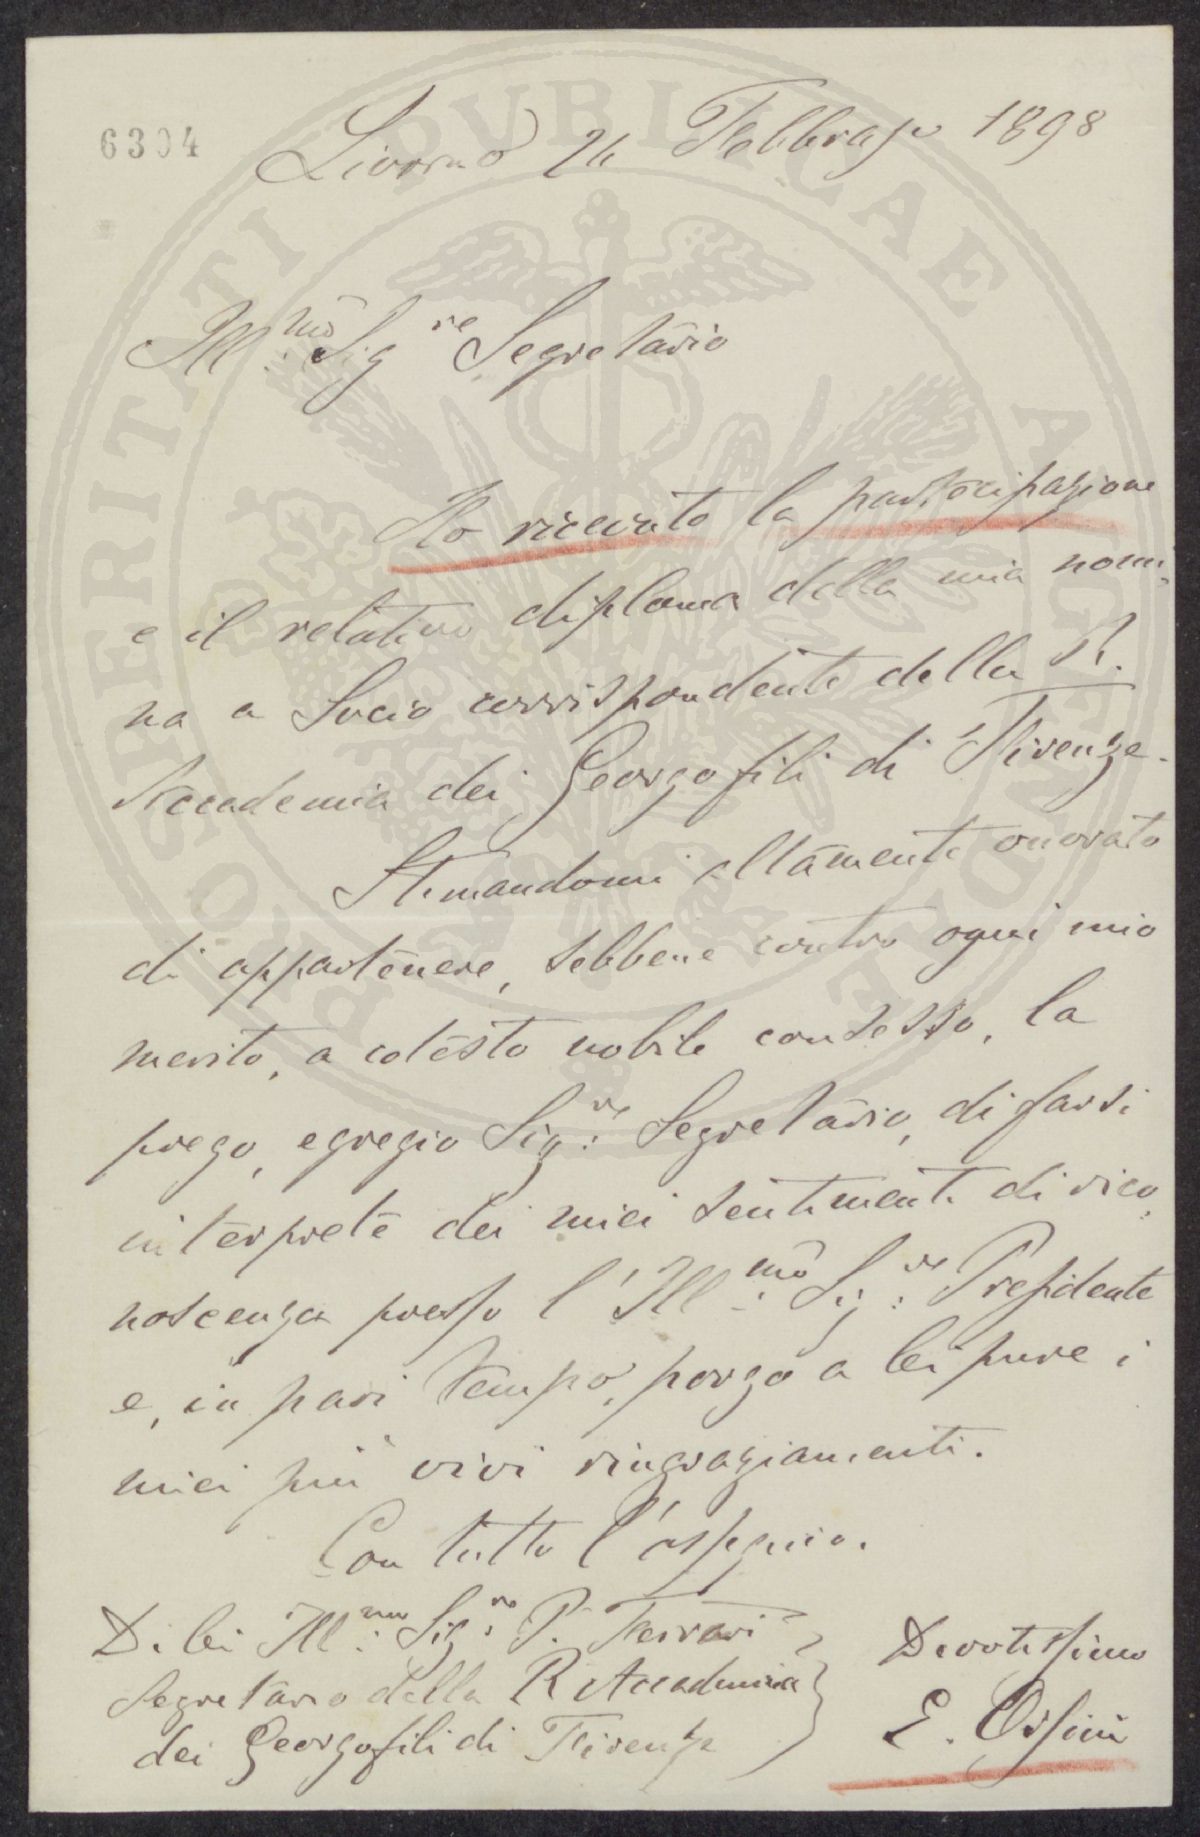 6304
Livorno 26 Febbrajo 1898
Ill.mo Sig.re Segretario
Ho ricevuto la partecipazione
e il relativo diploma della mia nomi-
na a Socio corrispondente della R.
Accademia dei Georgofili di Firenze.
Stimandomi altamente onorato
di appartenere, sebbene contro ogni mio
merito, a cotesto nobile consesso, la
prego, egregio Sig.re Segretario, di farsi
interprete dei miei sentimenti di rico-
noscenza presso l'Ill.mo Sig.re Presidente
e, in pari tempo, porgo a lei pure i
miei più vivi ringraziamenti.
Con tutto l'ossequio.
Di lei Ill.mo Sig.re P. Ferrari
Segretario della R Accademia
dei Georgofili di Firenze
Devotissimo
E. Orsini
PROSPERITATI PVBLICAE AVGENDAE